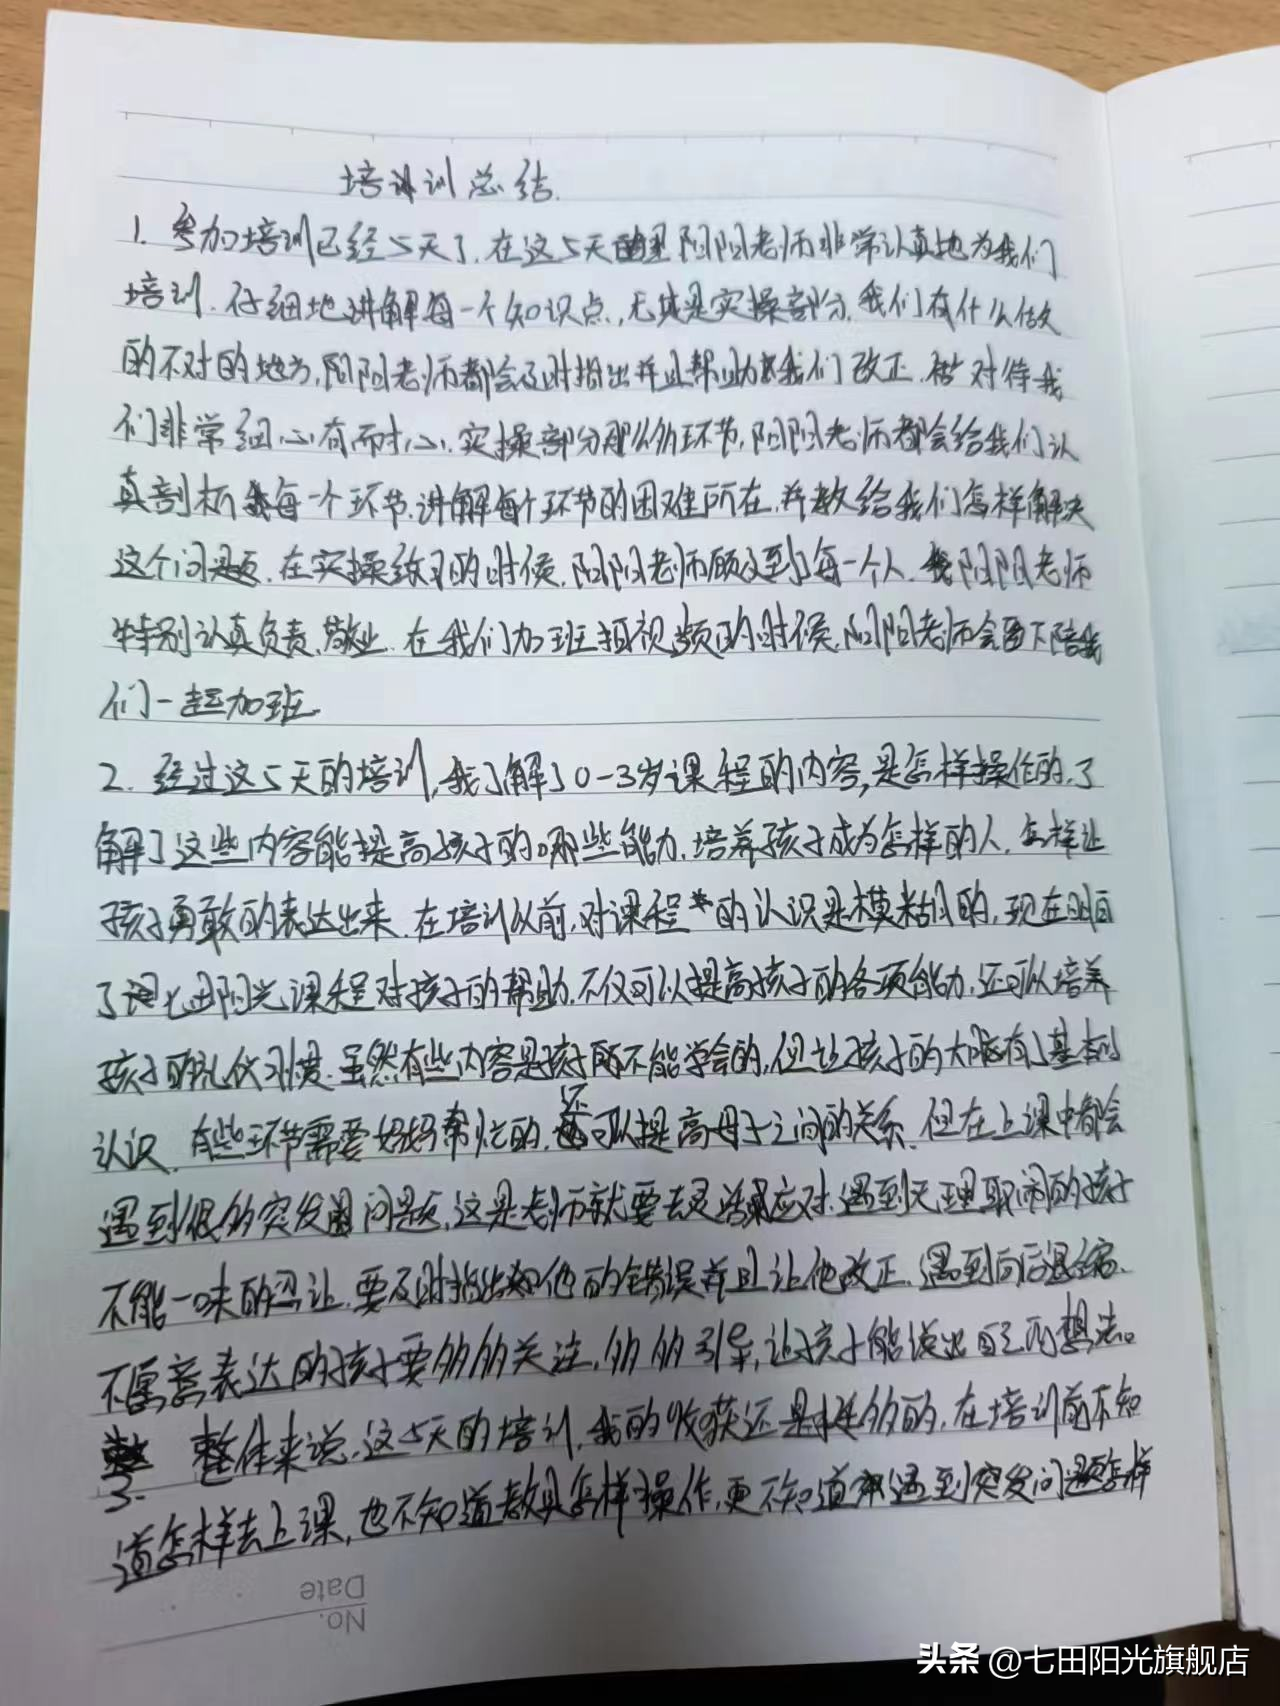 培训总结.
1. 参加培训已经5天了.在这5天里阳阳老师非常认真地为我们
培训.仔细地讲解每一个知识点,尤其是实操部分.我们有什么做
的不对的地方,阳阳老师都会及时指出并且帮助我们改正.对待我
们非常细心有耐心.实操部分那么多环节,阳阳老师都会给我们认
真剖析每一个环节.讲解每个环节的困难所在,并教给我们怎样解决
这个问题.在实操练习的时候,阳阳老师顾及到每一个人.阳阳老师
特别认真负责、敬业.在我们加班拍视频的时候,阳阳老师会留下陪我
们一起加班.
2. 经过这5天的培训,我了解了0-3岁课程的内容,是怎样操作的.了
解了这些内容能提高孩子的哪些能力.培养孩子成为怎样的人.怎样让
孩子勇敢的表达出来.在培训以前,对课程的认识是模糊的,现在明白
了七田阳光课程对孩子的帮助.不仅可以提高孩子的各项能力,还可以培养
孩子的礼仪习惯.虽然有些内容是孩子所不能学会的,但让孩子的大脑有了基本的
认识.有些环节需要妈妈帮忙的,还可以提高母子之间的关系.但在上课中都会
遇到很多突发问题,这是老师就要去灵活应对.遇到无理取闹的孩子
不能一味的忍让.要及时指出他的错误并且让他改正.遇到向后退缩.
不愿意表达的孩子要多多关注,多多引导,让孩子能说出自己的想法。
3. 整体来说,这5天的培训,我的收获还是挺多的,在培训前不知
道怎样去上课,也不知道教具怎样操作,更不知道遇到突发问题怎样
No.
Date
头条 @七田阳光旗舰店